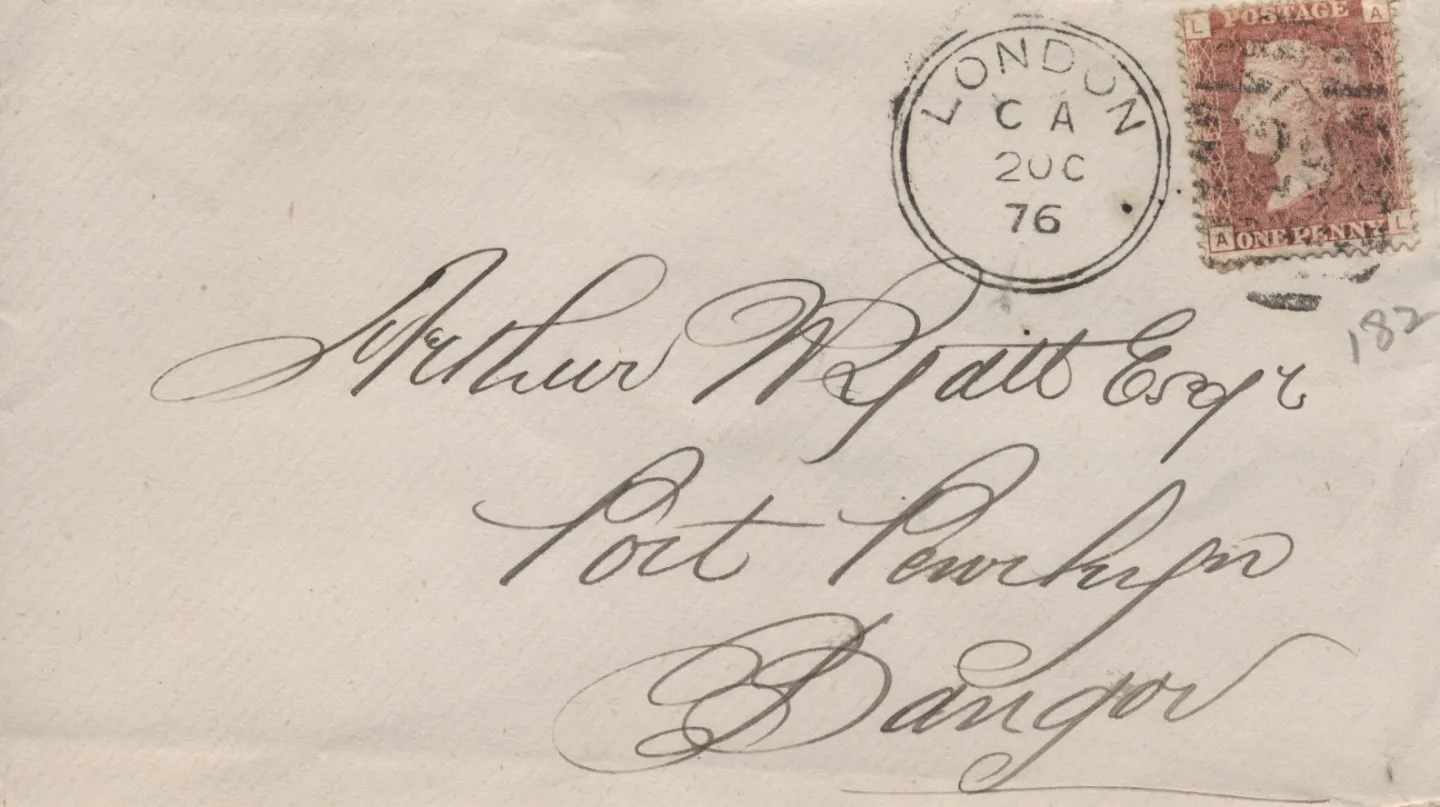 L POSTAGE A
LONDON
C A
2 OC
76
A ONE PENNY L
182
Arthur Wyatt Esqr
Port Penrhyn
Bangor